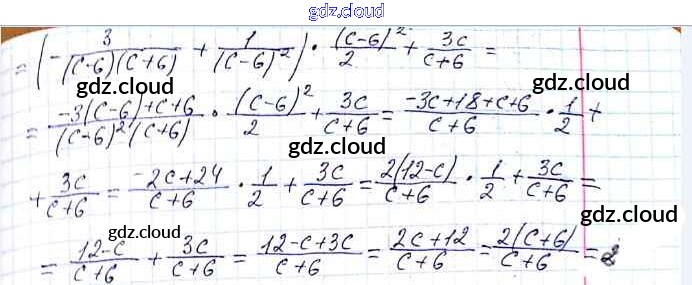 gdz.cloud
= (-3/((c-6)(c+6)) + 1/(c-6)²) · (c-6)²/2 + 3c/(c+6) =
gdz.cloud gdz.cloud
= (-3(c-6)+c+6)/((c-6)²(c+6)) · (c-6)²/2 + 3c/(c+6) = (-3c+18+c+6)/(c+6) · 1/2 +
gdz.cloud
+ 3c/(c+6) = (-2c+24)/(c+6) · 1/2 + 3c/(c+6) = 2(12-c)/(c+6) · 1/2 + 3c/(c+6) =
gdz.cloud gdz.cloud
= (12-c)/(c+6) + 3c/(c+6) = (12-c+3c)/(c+6) = (2c+12)/(c+6) = 2(c+6)/(c+6) = 2
gdz.cloud